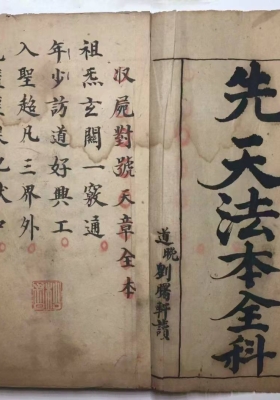 先天法本全科
道晚劉軒
收屍對號天章全本
祖炁玄關一竅通
年少訪道好興工
入聖超凡三界外